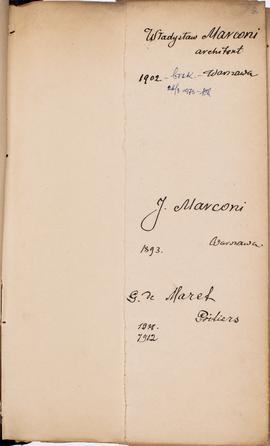 Władysław Marconi
architekt
1902 - brak - Warszawa
J. Marconi
Warszawa
1893.
G. de Maret
Poitiers
1912